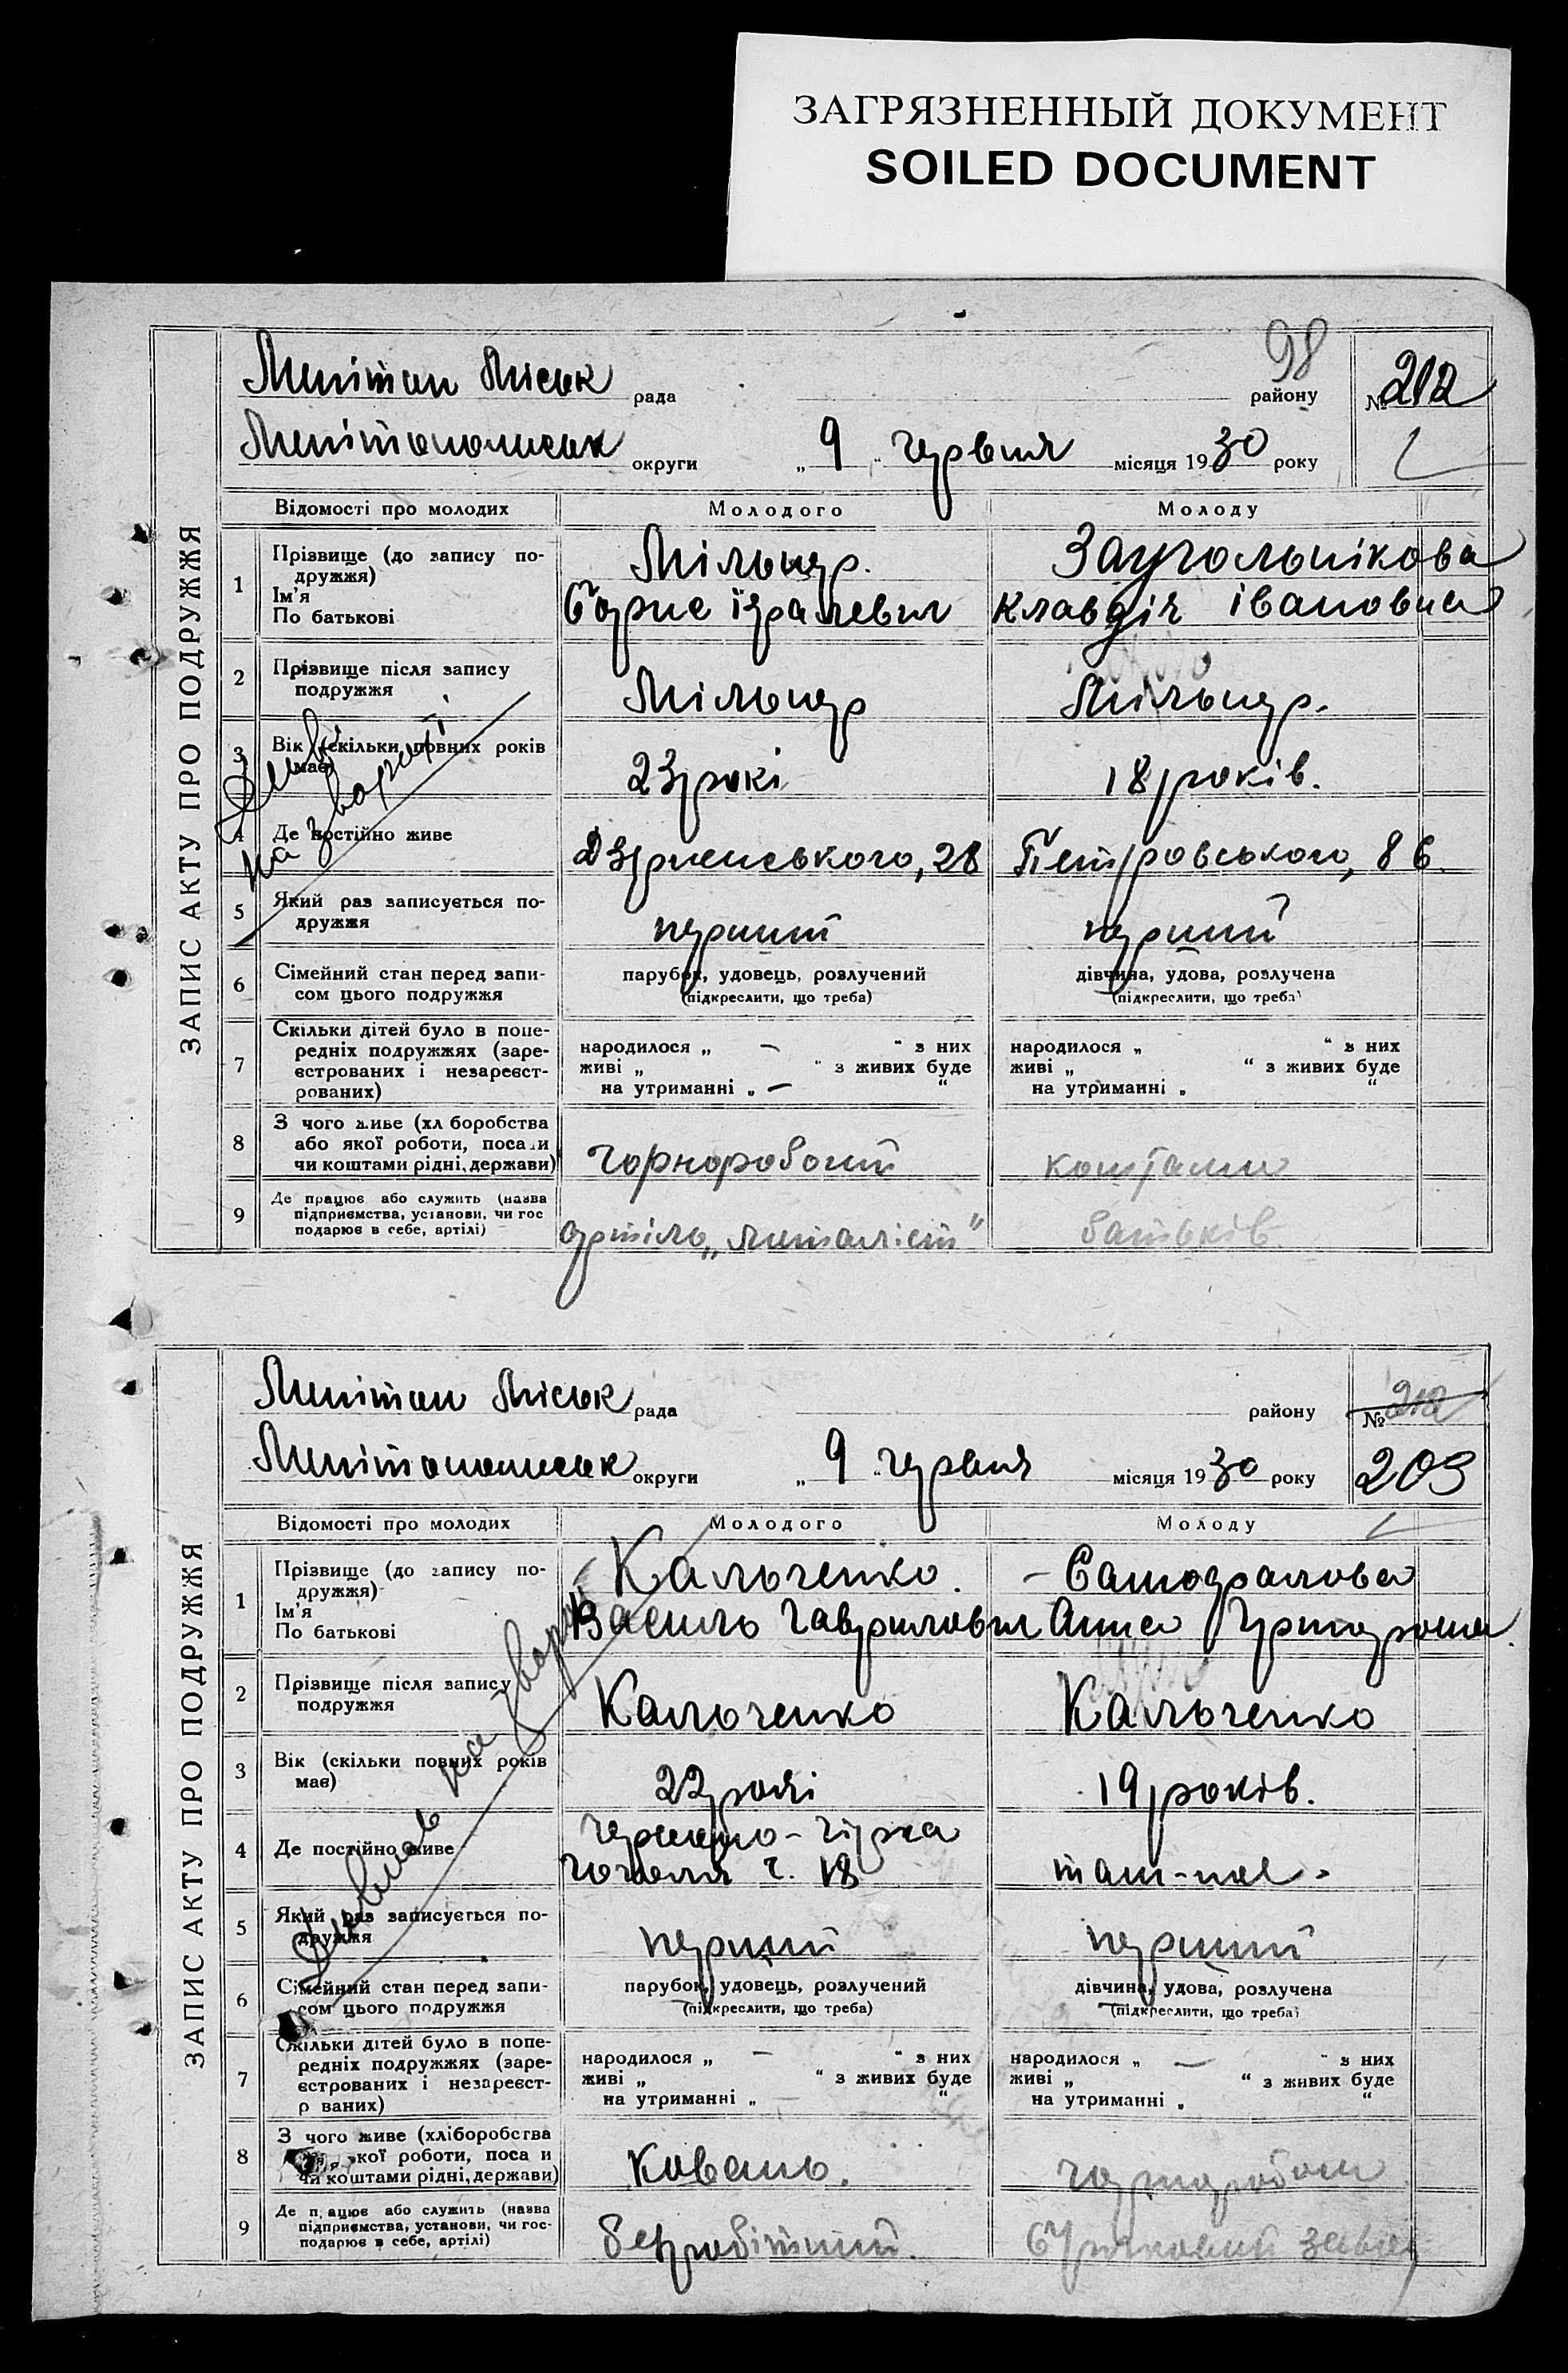 ЗАГРЯЗНЕННЫЙ ДОКУМЕНТ
SOILED DOCUMENT
98
Меліт Міськ рада району № 212
Мелітопольськ округи „ 9 " червня місяця 1930 року
ЗАПИС АКТУ ПРО ПОДРУЖЖЯ
Відомості про молодих Молодого Молоду
1 Прізвище (до запису подружжя) Мільнер. Заугольнікова
Ім'я
По батькові Борис Ізраілевич Клавдія Івановна
2 Прізвище після запису подружжя Мільнер Мільнер.
3 Вік (скільки повних років має) 23 рокі 18 років.
Дивись на звороті
4 Де постійно живе Дзерженського, 28 Петровського, 86.
5 Який раз записується подружжя перший перший
6 Сімейний стан перед записом цього подружжя парубок, удовець, розлучений дівчина, удова, розлучена
(підкреслити, що треба) (підкреслити, що треба)
7 Скільки дітей було в попередніх подружжях (зареєстрованих і незареєстрованих)
народилося „ — " з них народилося „ " з них
живі „ " з живих буде живі „ " з живих буде
на утриманні „ — " на утриманні „ "
8 З чого живе (хл боробства або якої роботи, посади чи коштами рідні, держави) чорноробочий коштами
9 Де працює або служить (назва підприємства, установи, чи господарює в себе, артілі) артіль „Металіст" батьків
Меліт Міськ рада району № 212
Мелітопольськ округи „ 9 " червня місяця 1930 року 203
ЗАПИС АКТУ ПРО ПОДРУЖЖЯ
Відомості про молодих Молодого Молоду
1 Прізвище (до запису подружжя) Кальченко. – Самодралова
Ім'я
По батькові Василь Гаврилович Анна
2 Прізвище після запису подружжя Кальченко Кальченко
3 Вік (скільки повних років має) 22 рокі 19 років.
4 Де постійно живе Гоголя ч. 18 там-же.
Дивись на звороті
5 Який раз записується подружжя перший перший
6 Сімейний стан перед записом цього подружжя парубок, удовець, розлучений дівчина, удова, розлучена
(підкреслити, що треба) (підкреслити, що треба)
7 Скільки дітей було в попередніх подружжях (зареєстрованих і незареєст- р ваних)
народилося „ — " з них народилося „ — " з них
живі „ " з живих буде живі „ " з живих буде
на утриманні „ " на утриманні „ "
8 З чого живе (хліборобства кої роботи, поса и чи коштами рідні, держави) Коваль. чорноробоча
9 Де п ацює або служить (назва підприємства, установи, чи господарює в себе, артілі) безробітний. завод